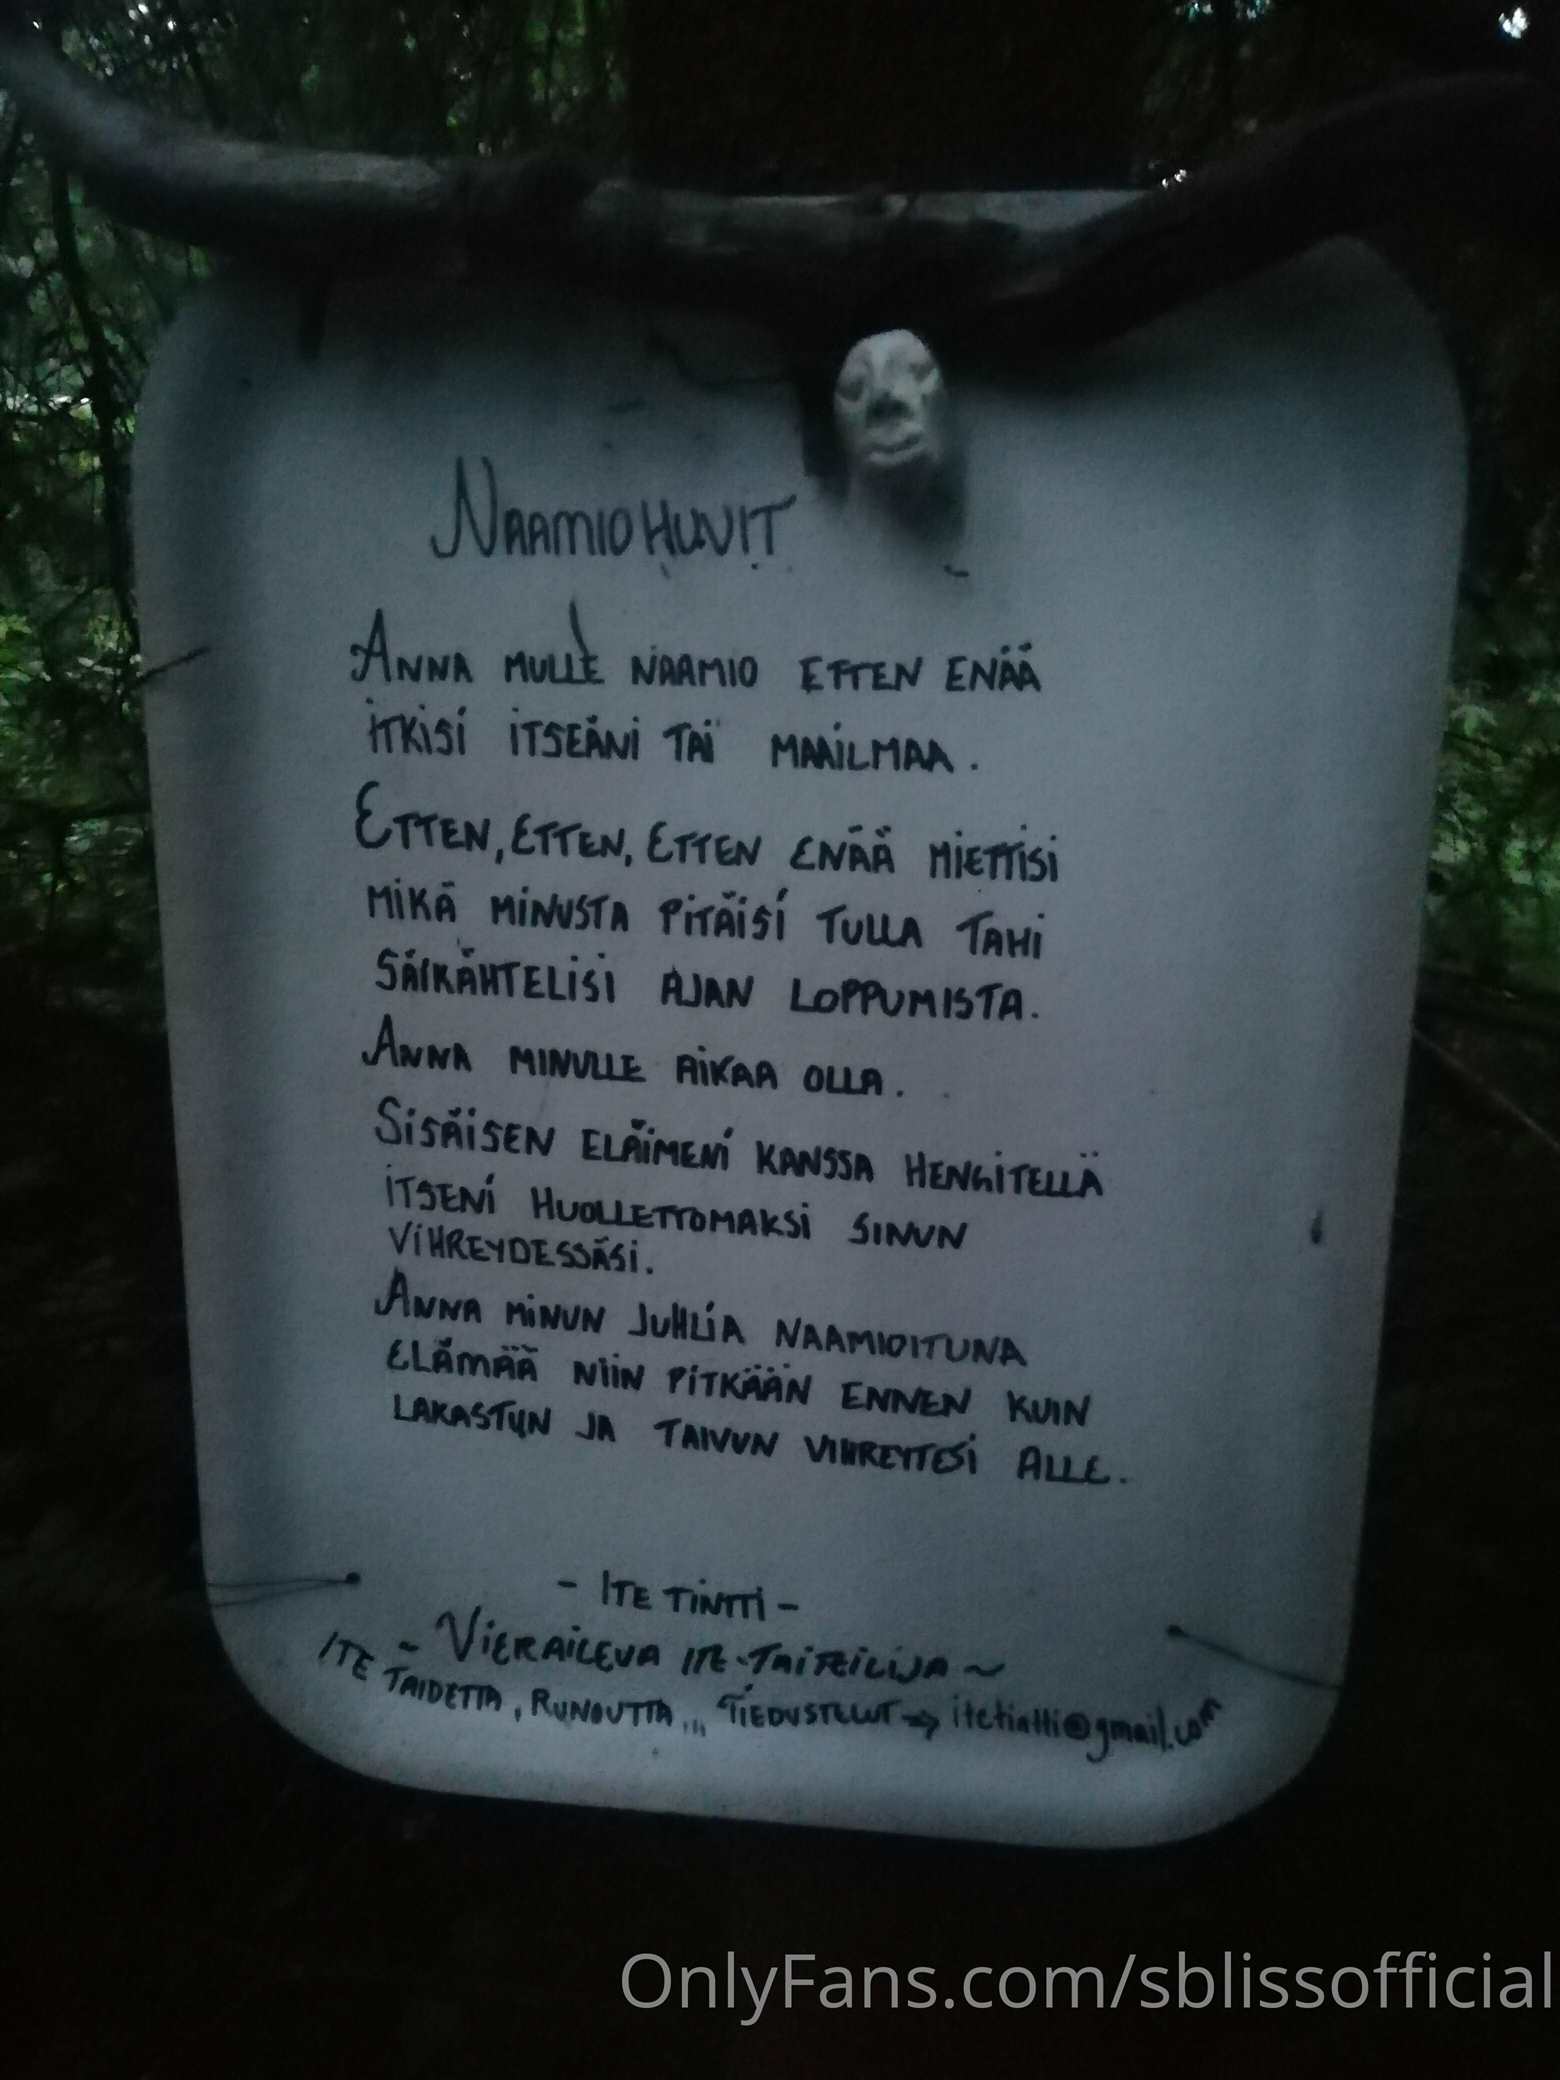 NAAMIOHUVIT
ANNA MULLE NAAMIO ETTEN ENÄÄ
ITKISI ITSEÄNI TAI MAAILMAA.
ETTEN, ETTEN, ETTEN ENÄÄ MIETTISI
MIKÄ MINUSTA PITÄISI TULLA TAHI
SÄIKÄHTELISI AJAN LOPPUMISTA.
ANNA MINULLE AIKAA OLLA.
SISÄISEN ELÄIMENI KANSSA HENGITELLÄ
ITSENI HUOLLETTOMAKSI SINUN
VIHREYDESSÄSI.
ANNA MINUN JUHLIA NAAMIOITUNA
ELÄMÄÄ NIIN PITKÄÄN ENNEN KUIN
LAKASTUN JA TAIVUN VIHREYTESI ALLE.
- ITE TINTTI -
~ VIERAILEVA ITE-TAITEILIJA ~
ITE TAIDETTA, RUNOUTTA,,, TIEDUSTELUT → itetintti@gmail.com
OnlyFans.com/sblissofficial